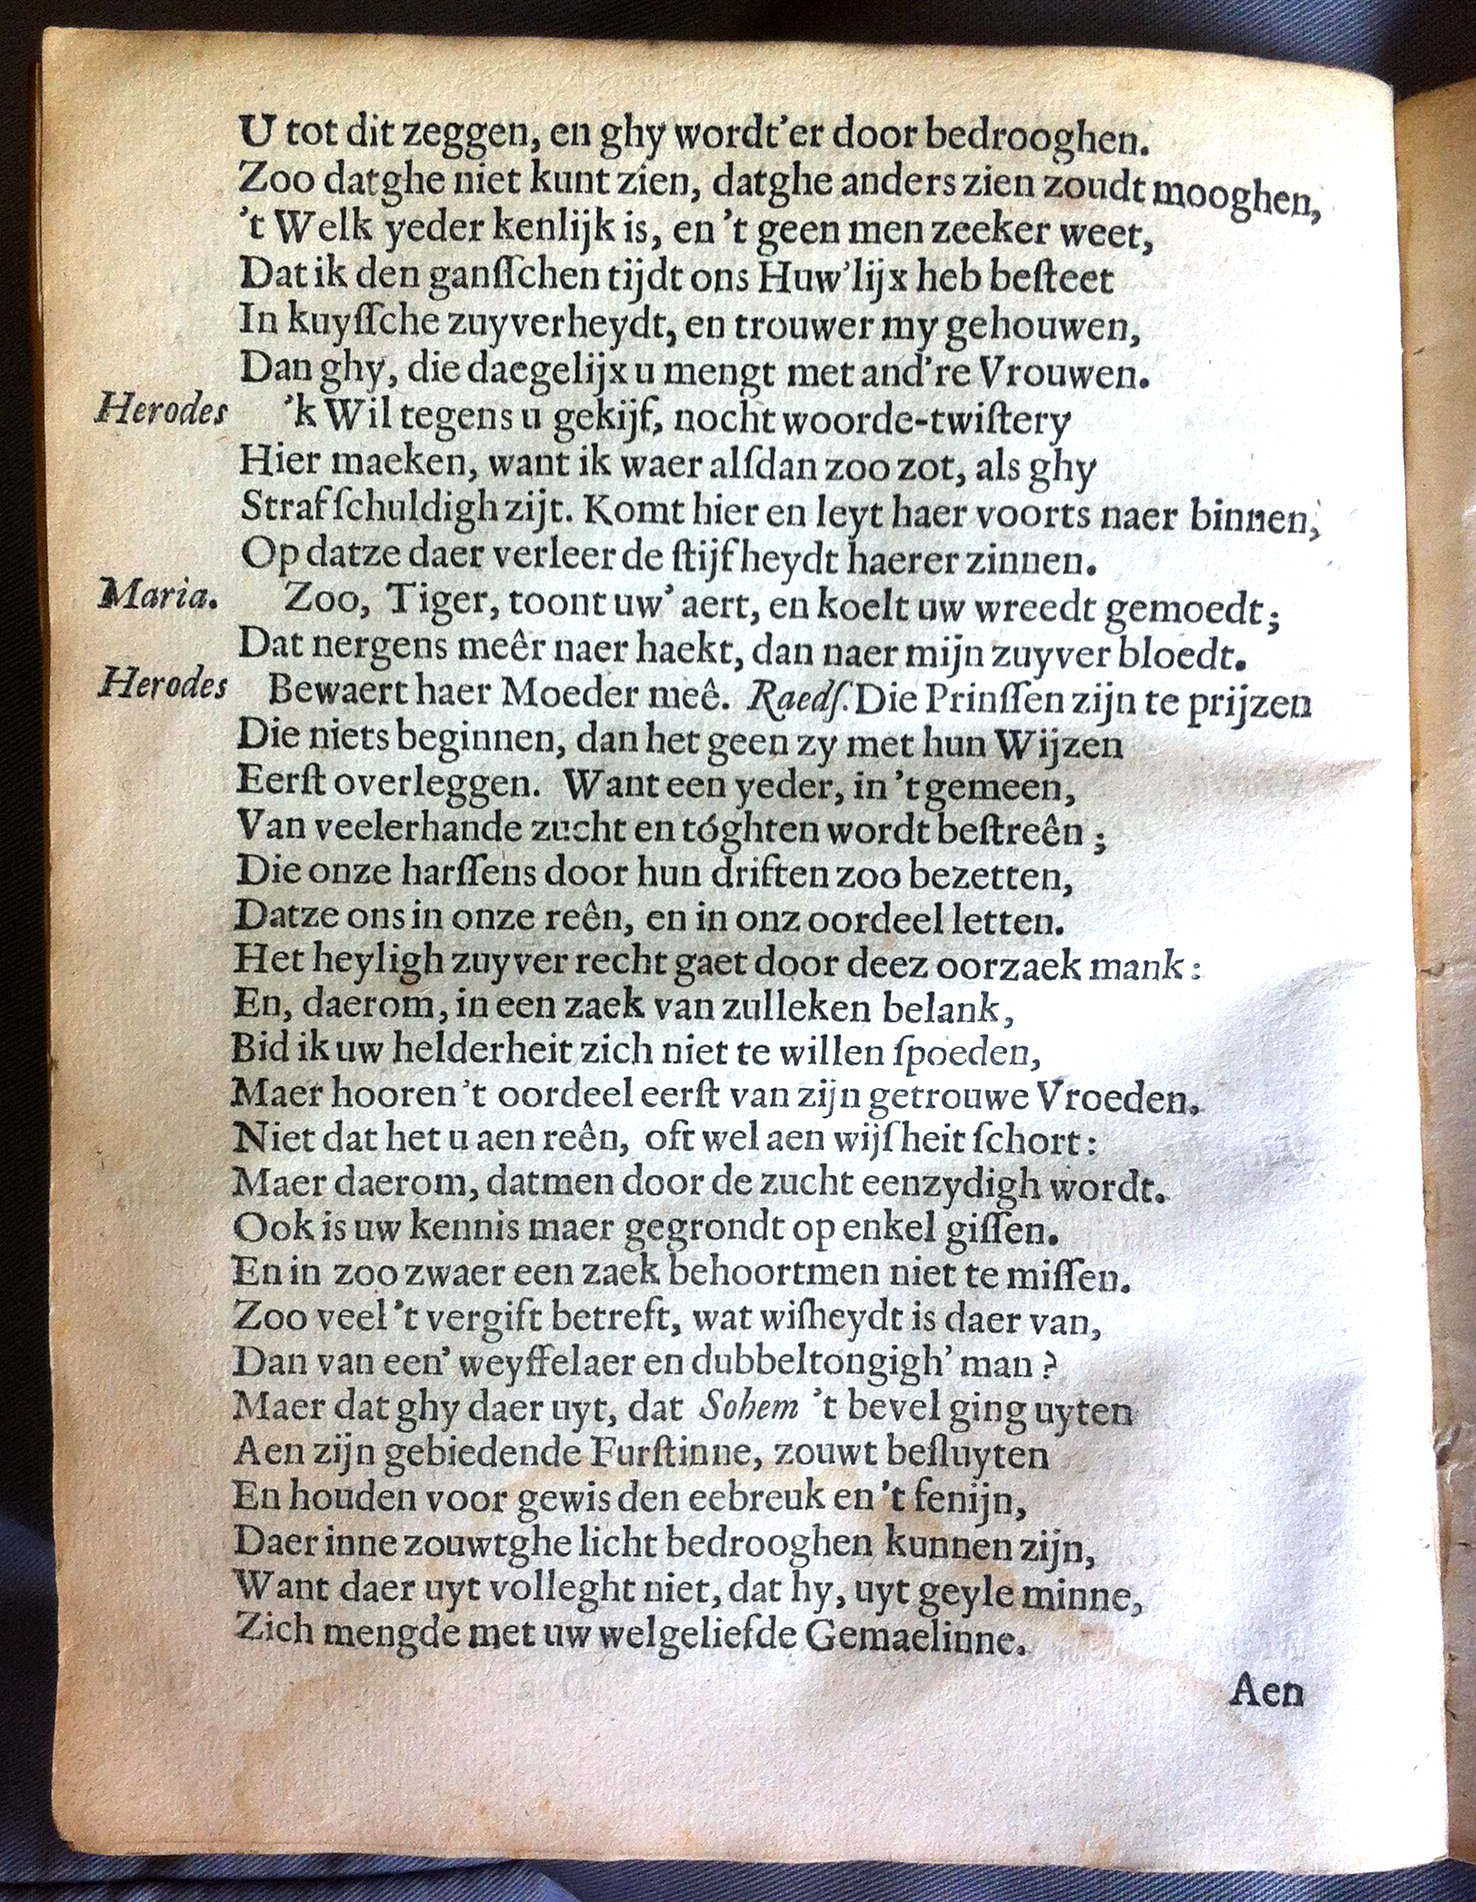 U tot dit zeggen, en ghy wordt'er door bedrooghen.
Zoo datghe niet kunt zien, datghe anders zien zoudt mooghen,
't Welk yeder kenlijk is, en 't geen men zeeker weet,
Dat ik den ganſſchen tijdt ons Huw'lijx heb beſteet
In kuyſſche zuyverheydt, en trouwer my gehouwen,
Dan ghy, die daegelijx u mengt met and're Vrouwen.
Herodes 'k Wil tegens u gekijf, nocht woorde-twiſtery
Hier maeken, want ik waer alſdan zoo zot, als ghy
Strafſchuldigh zijt. Komt hier en leyt haer voorts naer binnen,
Op datze daer verleer de ſtijfheydt haerer zinnen.
Maria. Zoo, Tiger, toont uw' aert, en koelt uw wreedt gemoedt;
Dat nergens meêr naer haekt, dan naer mijn zuyver bloedt.
Herodes Bewaert haer Moeder meê. Raedſ. Die Prinſſen zijn te prijzen
Die niets beginnen, dan het geen zy met hun Wijzen
Eerſt overleggen. Want een yeder, in 't gemeen,
Van veelerhande zucht en tóghten wordt beſtreên;
Die onze harſſens door hun driften zoo bezetten,
Datze ons in onze reên, en in onz oordeel letten.
Het heyligh zuyver recht gaet door deez oorzaek mank:
En, daerom, in een zaek van zulleken belank,
Bid ik uw helderheit zich niet te willen ſpoeden,
Maer hooren 't oordeel eerſt van zijn getrouwe Vroeden.
Niet dat het u aen reên, oft wel aen wijſheit ſchort:
Maer daerom, datmen door de zucht eenzydigh wordt.
Ook is uw kennis maer gegrondt op enkel giſſen.
En in zoo zwaer een zaek behoortmen niet te miſſen.
Zoo veel 't vergift betreft, wat wiſheydt is daer van,
Dan van een' weyffelaer en dubbeltongigh' man?
Maer dat ghy daer uyt, dat Sohem 't bevel ging uyten
Aen zijn gebiedende Furſtinne, zouwt beſluyten
En houden voor gewis den eebreuk en 't fenijn,
Daer inne zouwtghe licht bedrooghen kunnen zijn,
Want daer uyt volleght niet, dat hy, uyt geyle minne,
Zich mengde met uw welgeliefde Gemaelinne.
Aen